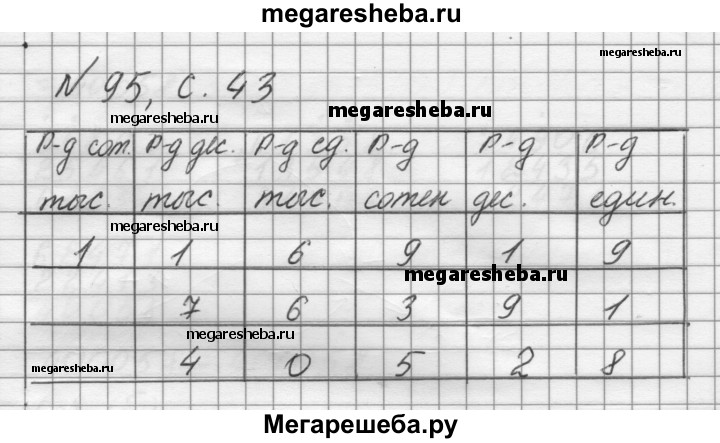 megaresheba.ru
megaresheba.ru
№ 95, с. 43
megaresheba.ru
megaresheba.ru
Р-д сот. Р-д дес. Р-д ед. Р-д Р-д Р-д
тыс. тыс. тыс. сотен дес. един.
megaresheba.ru
1 1 6 9 1 9
megaresheba.ru
7 6 3 9 1
megaresheba.ru
megaresheba.ru 4 0 5 2 8
Мегарешеба.ру